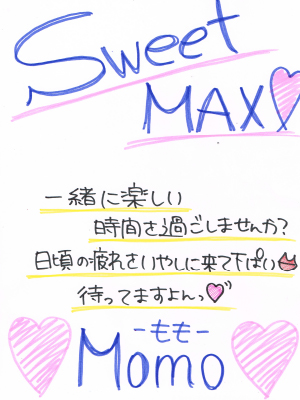 Sweet
MAX
一緒に楽しい
時間を過ごしませんか?
日頃の疲れをいやしに来て下ぱい
待ってますよんっ
-もも-
Momo